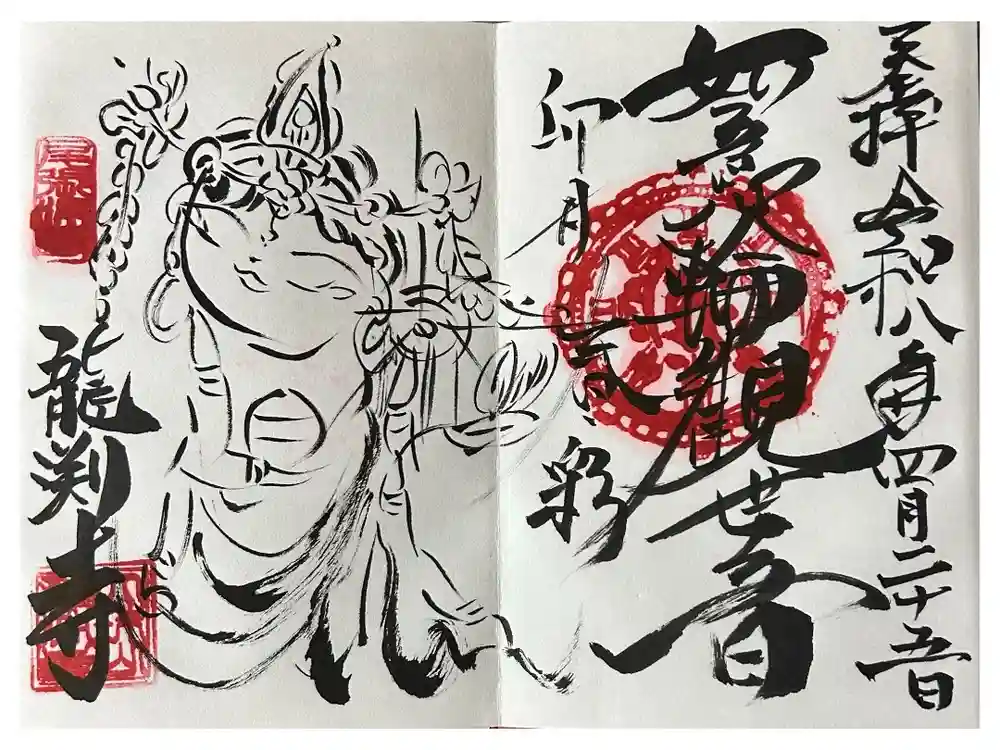 奉拝 令和八年四月二十五日
如意輪観世音
卯月
彩
龍渕寺